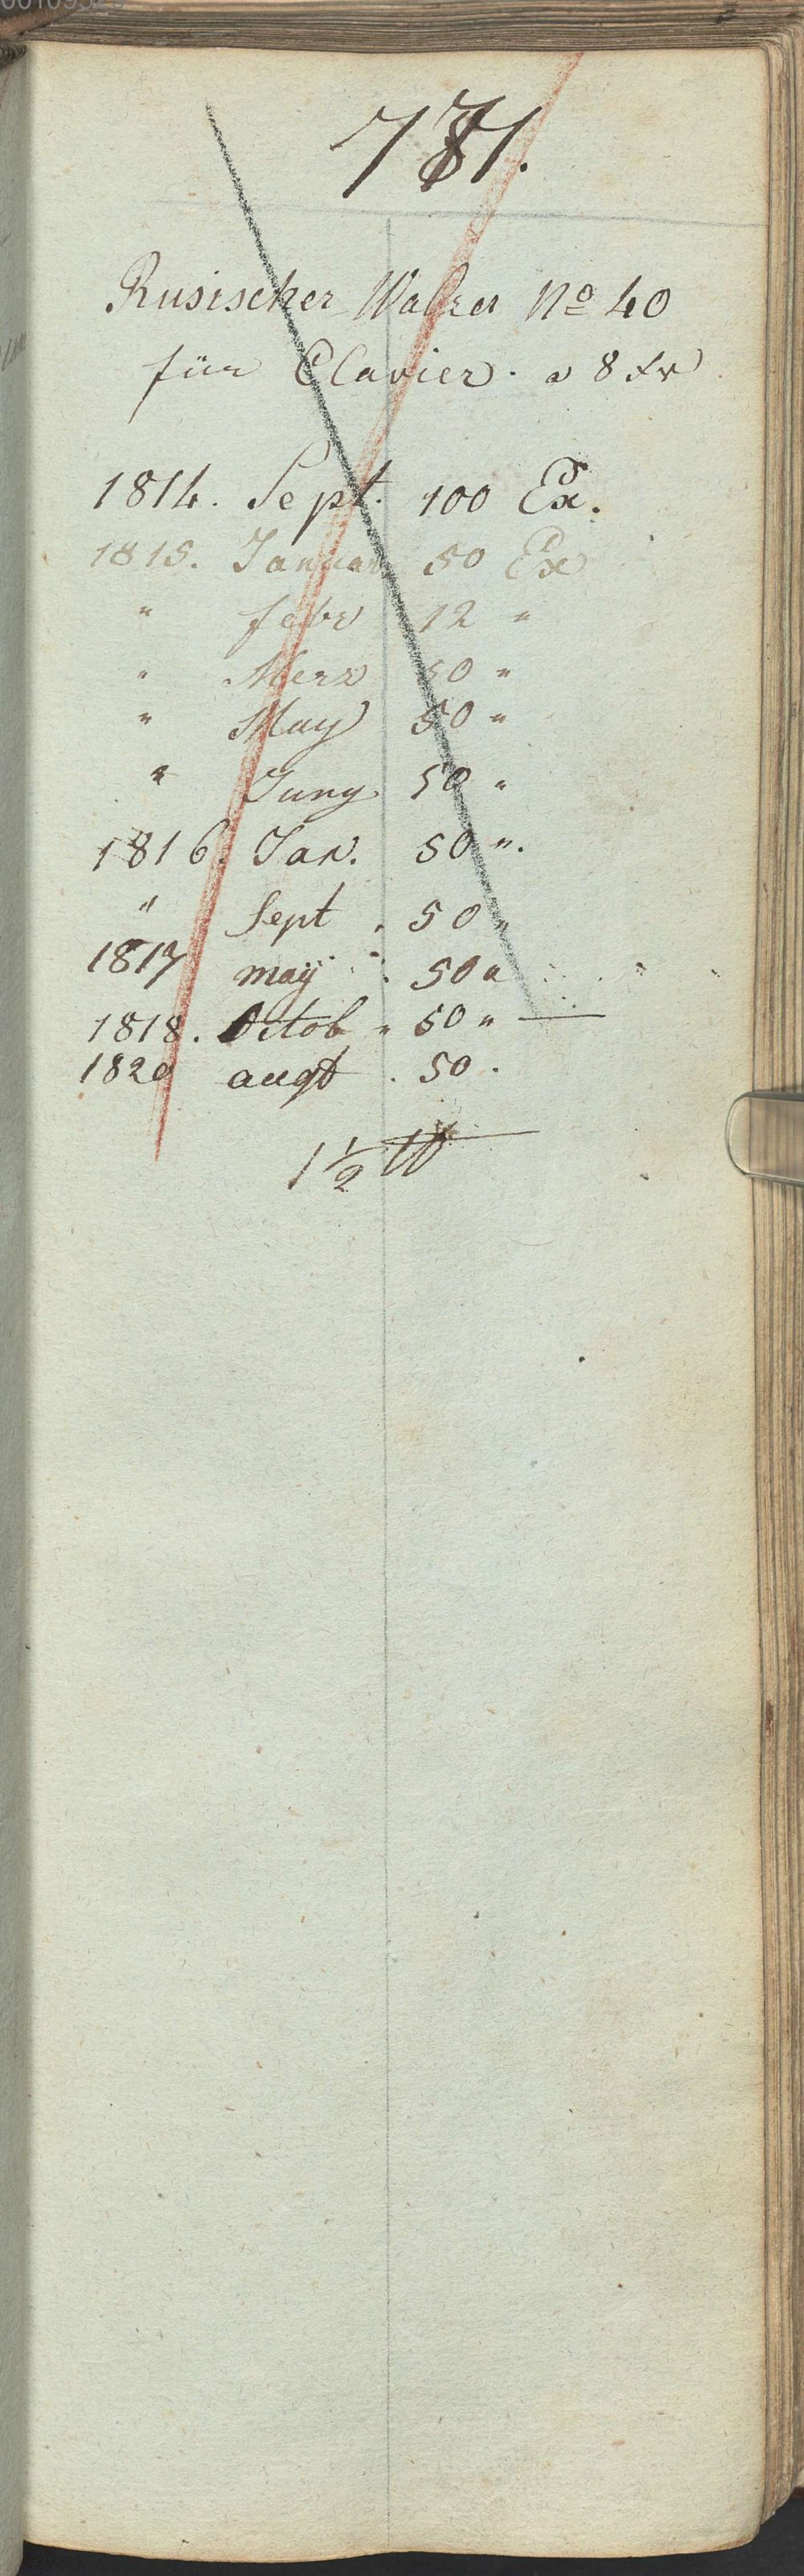 771.
Rusischer Walzer No 40
für Clavier. a 8 xr
1814. Sept. 100 Ex.
1815. Januar 50 Ex
" febr 12 "
" Merz 50 "
" May 50 "
" Juny. 50 "
1816. Jan. 50 ".
" Sept . 50 "
1817 may . 50 "
1818. Octob " 50 " —
1820 augt . 50 .
1 1/2 ℔